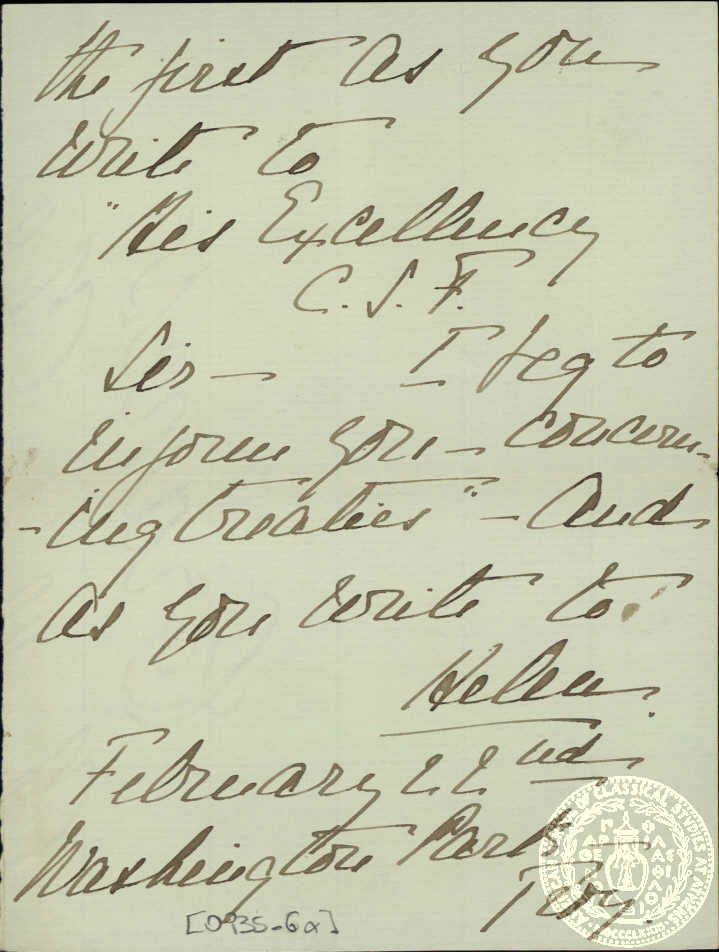 the first as you
write to
"His Excellency
C. S. F.
Sir — I beg to
inform you — concern-
-ing treaties" — And
as you write to
Helen.
February 22nd
Washington Park
Troy.
[0935-6α]
AMERICAN SCHOOL OF CLASSICAL STUDIES AT ATHENS
MDCCCLXXXI